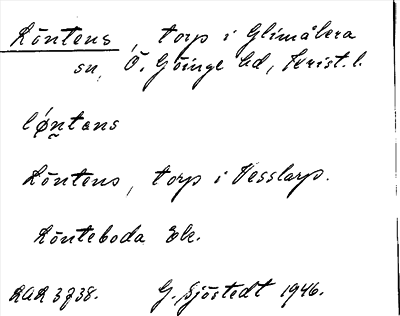 Löntens, torp i Glimåkra
sn, Ö. Göinge hd, Krist. l.
lǿntens
Löntens, torp i Vesslarp.
Lönteboda Ek.
G. Sjöstedt 1946.